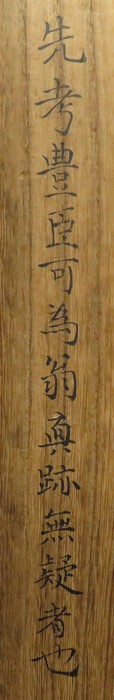 先考豊臣可為翁真跡無疑者也